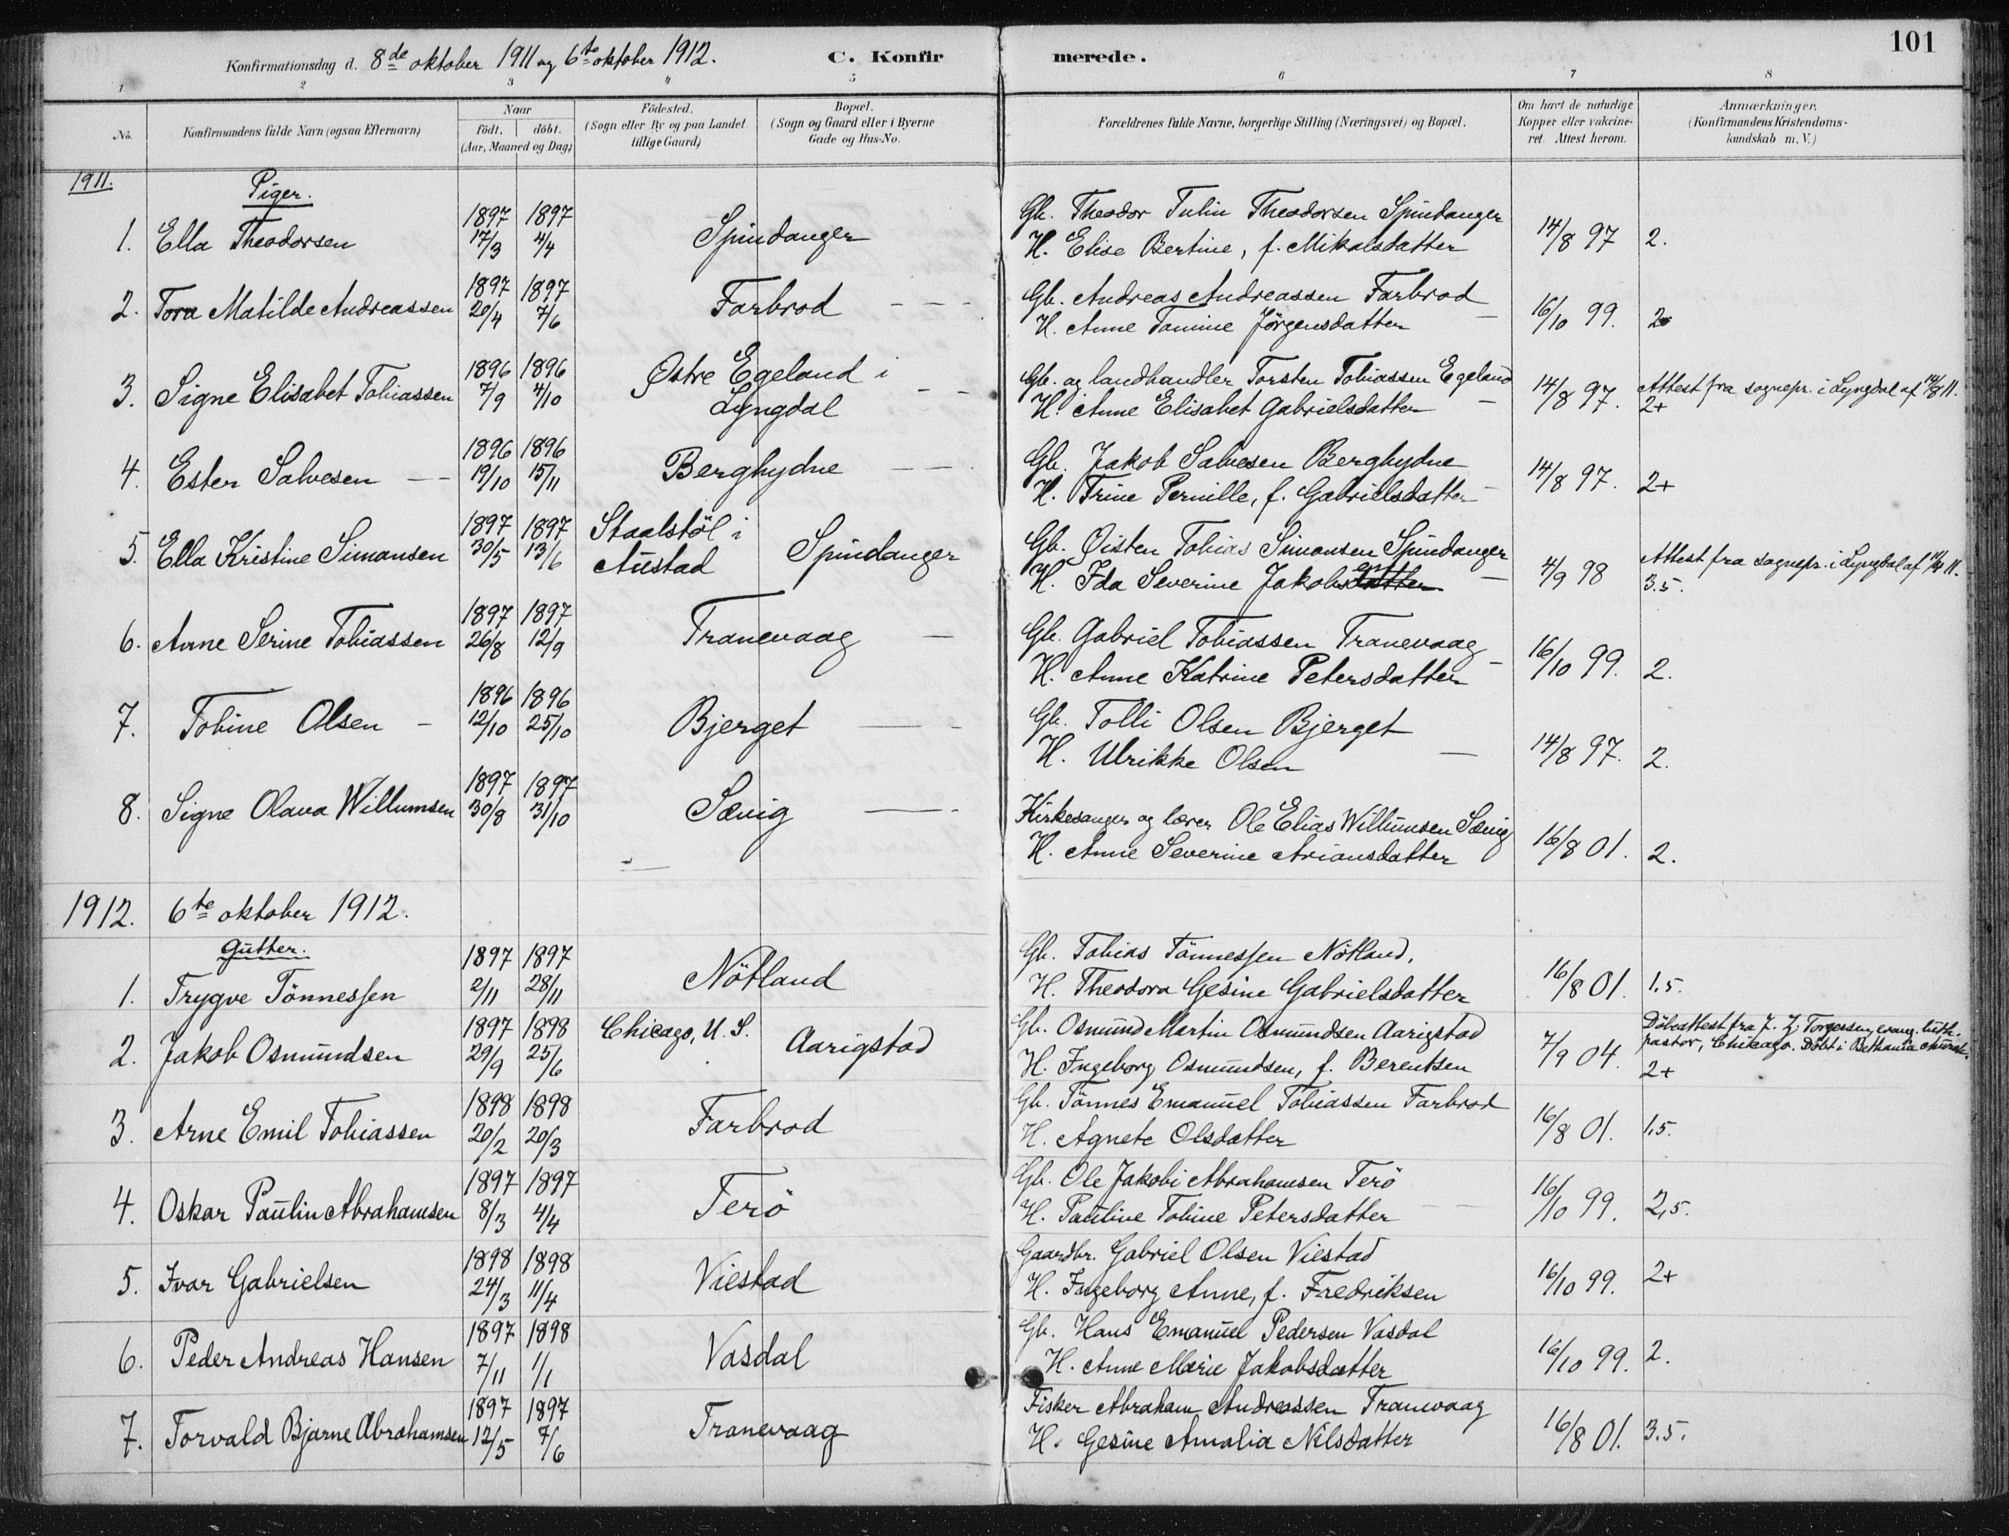 101
Konfirmationsdag d. 8de oktober 1911 og 6te oktober 1912. C. Konfirmerede.
1 2 3 4 5 6 7 8
No. Konfirmandens fulde Navn (ogsaa Efternavn) Naar födt. döbt. (Aar, Maaned og Dag) Födested. (Sogn eller By og paa Landet tillige Gaard) Bopæl. (Sogn og Gaard eller i Byerne Gade og Hus-No. Forældrenes fulde Navne, borgerlige Stilling (Næringsvei) og Bopæl. Om havt de naturlige Kopper eller vakcineret. Attest herom. Anmærkninger. (Konfirmandens Kristendomskundskab m.V.)
1911. Piger.
1. Ella Theodorsen 1897 17/3 1897 4/4 Spindanger Gb. Theodor Tulin Theodorsen Spindanger
H. Elise Bertine, f. Mikalsdatter 14/8 97 2.
2. Tora Matilde Andreassen 1897 20/4 1897 7/6 Farbrod Gb. Andreas Andreassen Farbrod
H. Anne Tomine Jørgensdatter 16/10 99. 2
3. Signe Elisabet Tobiassen 1896 7/9 1896 4/10 Østre Egeland i Lyngdal Gb. og landhandler Torsten Tobiassen Egeland
H. Anne Elisabet Gabrielsdatter 14/8 97. Attest fra sognepr. i Lyngdal af 11.
2+
4. Ester Salvesen 1896 19/10 1896 15/11 Berghydne Gb. Jakob Salvesen Berghydne
H. Trine Pernille, f. Gabrielsdatter 14/8 97. 2+
5. Ella Kristine Simonsen 1897 30/5 1897 13/6 Staalstöl i Austad Spindanger Gb. Øisten Tobias Simonsen Spindanger
H. Ida Severine Jakobsdatter 4/9 98 Attest fra sognepr. i Lyngdal af 11.
3.5.
6. Anne Serine Tobiassen 1897 26/8 1897 12/9 Tranevaag Gb. Gabriel Tobiassen Tranevaag
H. Anne Katrine Petersdatter 16/10 99. 2.
7. Tobine Olsen 1896 12/10 1896 25/10 Bjerget Gb. Tolli Olsen Bjerget
H. Ulrikke Olsen 14/8 97. 2.
8. Signe Olava Willumsen 1897 30/8 1897 31/10 Sævig Kirkesanger og lærer Ole Elias Willumsen Sævig
H. Anne Severine Ariansdatter 16/8 01. 2.
1912. 6te oktober 1912.
Gutter.
1. Trygve Tönnessen 1897 2/11 1897 28/11 Nötland Gb. Tobias Tönnessen Nötland,
H. Theodora Gesine Gabrielsdatter 16/8 01. 1,5.
2. Jakob Osmundsen 1897 29/9 1898 25/6 Chicago, U.S. Aarigstad Gb. Osmund Martin Osmundsen Aarigstad
H. Ingeborg Osmundsen, f. Berentsen 7/9 04. Döbeattest fra J. Z. Torgersen, evang. luth. pastor, Chicago. Döbt i Bethania church.
2+
3. Arne Emil Tobiassen 1898 20/2 1898 20/3 Farbrod Gb. Tönnes Emanuel Tobiassen Farbrod
H. Agnete Olsdatter 16/8 01. 1,5.
4. Oskar Paulin Abrahamsen 1897 8/3 1897 4/4 Terö Gb. Ole Jakobi Abrahamsen Terö
H. Pauline Tobine Petersdatter 16/10 99. 2,5.
5. Ivar Gabrielsen 1898 24/3 1898 11/4 Viestad Gaardbr. Gabriel Olsen Viestad
H. Ingeborg Anne, f. Fredriksen 16/10 99. 2+
6. Peder Andreas Hansen 1897 7/11 1898 1/1 Vasdal Gb. Hans Emanuel Pedersen Vasdal
H. Anne Marie Jakobsdatter 16/10 99. 2.
7. Torvald Bjarne Abrahamsen 1897 12/5 1897 7/6 Tranevaag Fisker Abraham Andreassen Tranevaag
H. Gesine Amalia Nilsdatter 16/8 01. 3.5.